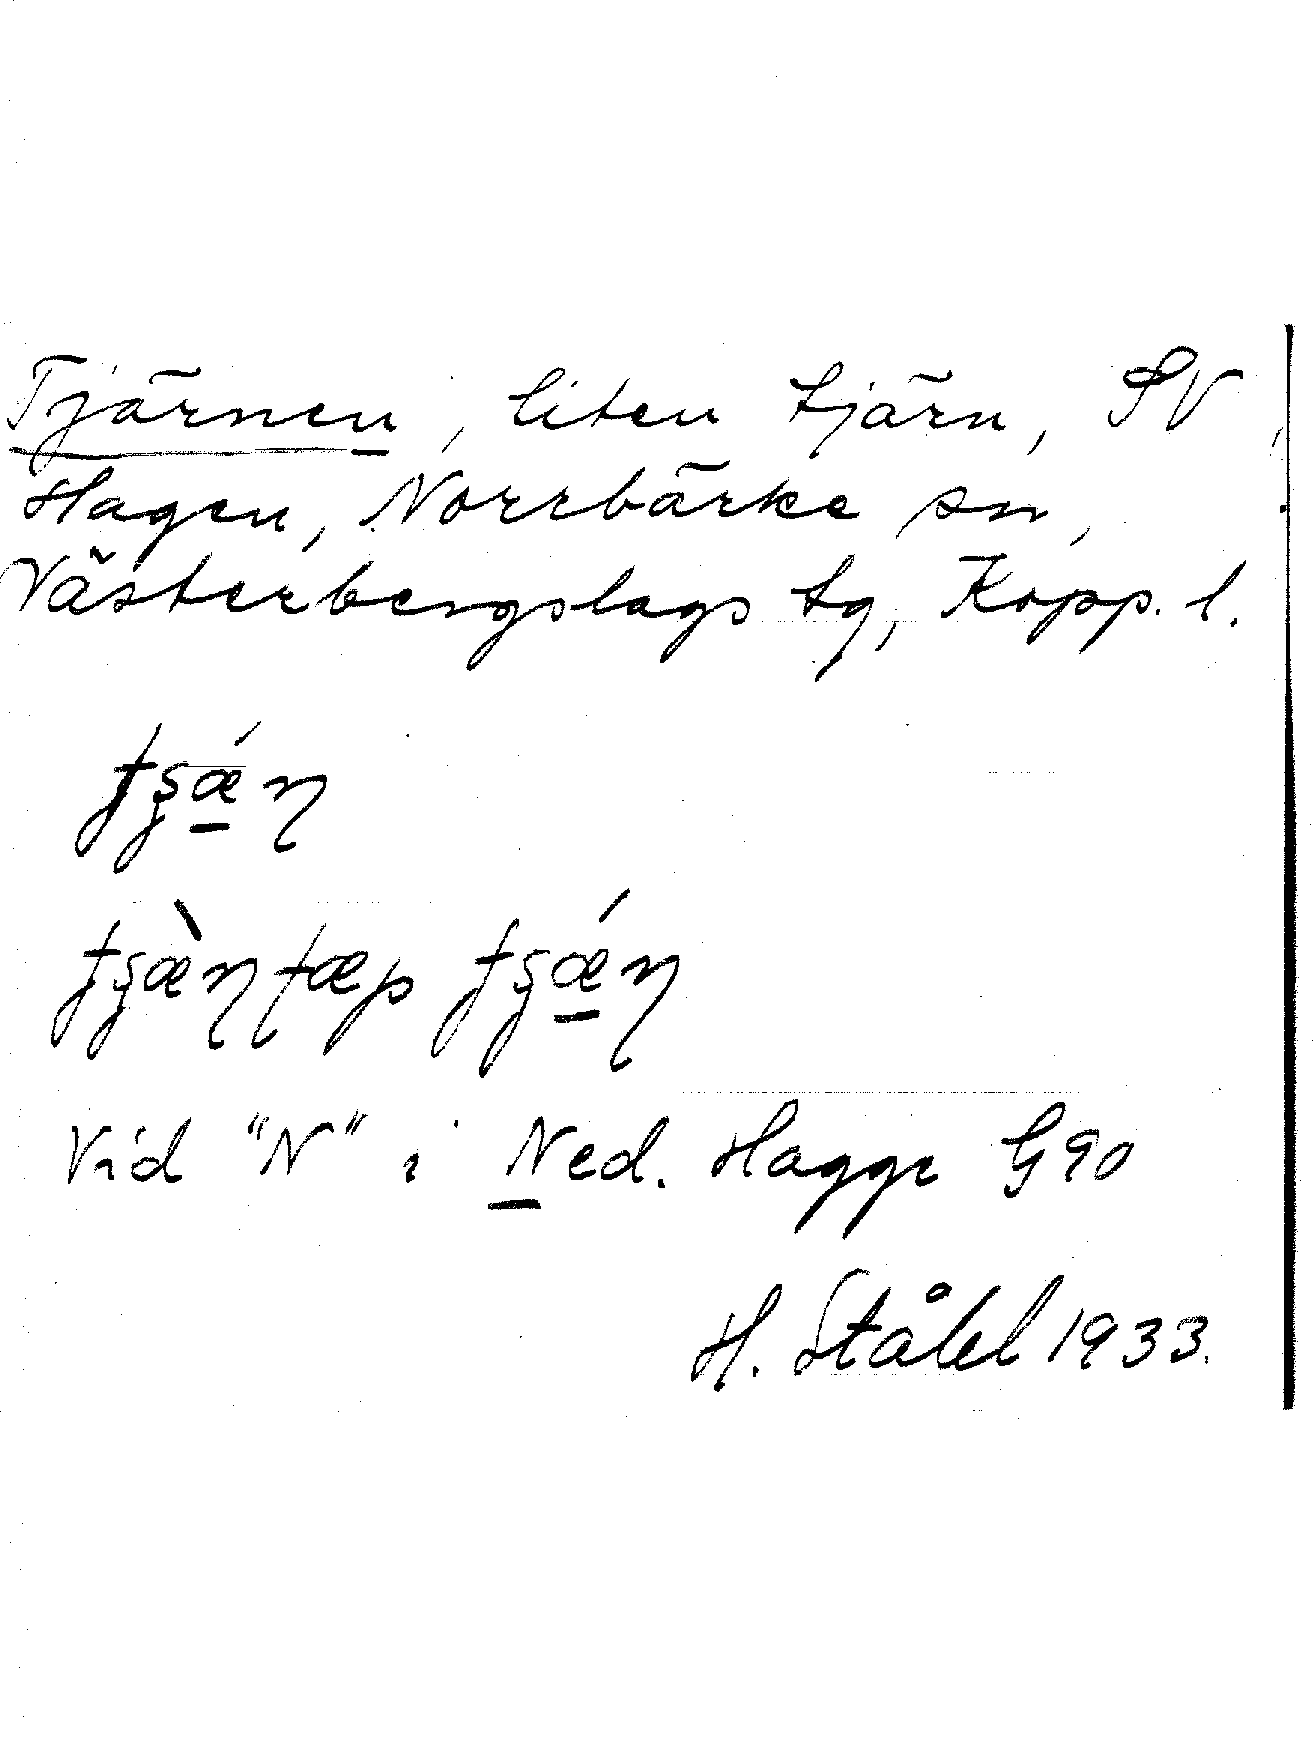 Tjärnen, liten tjärn, SV
Hagen, Norrbärke sn,
Västerbergslags tg, Kopp. l.
Vid "N" i Ned. Hagge G90
H. Ståhl 1933.